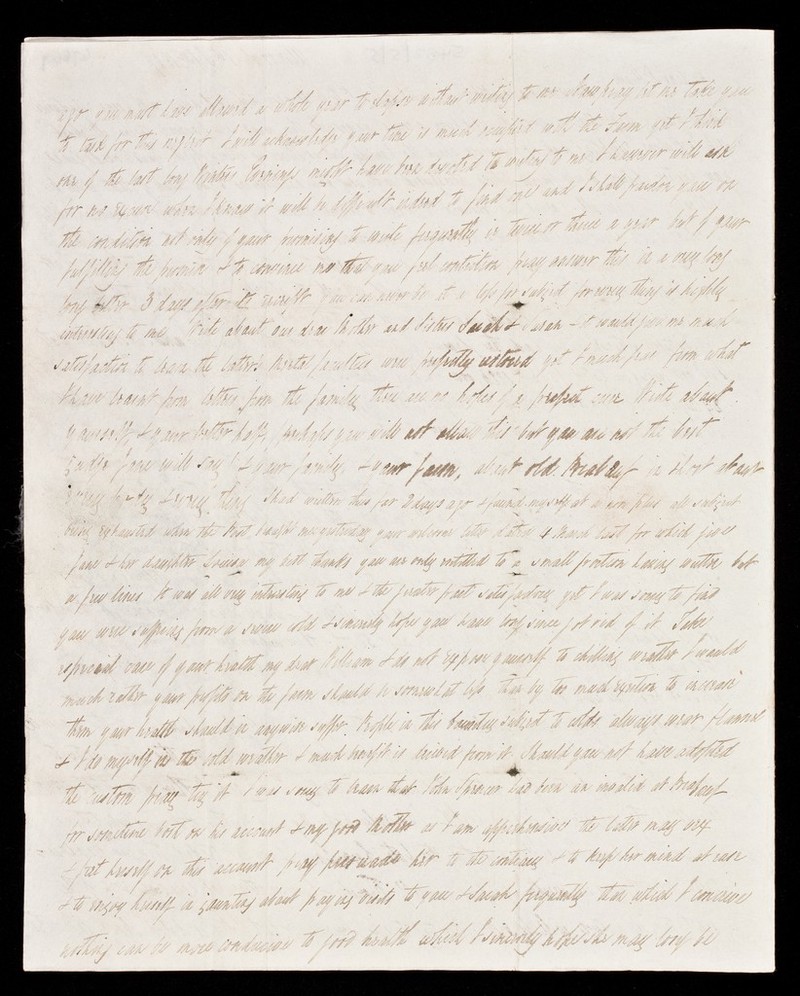 ago you must have allowed a whole year to elapse without writing to me & am I now not to take you
to task for this neglect I will acknowledge your time is much occupied with the Farm yet I think
one of the last long Winters Evenings might have been devoted to writing to me I however will ask
for no excuse when I know it will be difficult indeed to find one and I shall pardon you on
the condition not only of your promising to write frequently ie twice or thrice a year but of your
fulfilling the promise & to convince me that you feel contrition pray answer this in a very long
long letter 3 days after its receipt You can never be at a loss for subject for every thing is highly
interesting to me Write about our dear Mother and Sisters Sarah & Susan - it would give me much
satisfaction to learn the latter's Mental faculties were perfectly restored yet I much fear from what
I have learnt from letters from the family there are no hopes of a perfect cure Write about
yourself & your better half, (perhaps you will not allow this but you are not the best
judge Jane will say) & your family & your farm, about old in short about
every body & every thing I had written this far 2 days ago & found myself at a non plus all subject
being exhausted when the Post brought me yesterday your welcome letter dated 4 March last for which give
Jane & her daughter Louisa my best thanks you are only entitled to a small portion having written but
a few lines. It was all very interesting to me & the greater part satisfactory yet I was sorry to find
you were suffering from a severe cold & sincerely hope you have long since got rid of it Take
especial care of your health my dear William & do not expose yourself to chilling weather I would
much rather your profits on the farm should be somewhat less than by too much exertion to increase
them your health should in anywise suffer. People in this Country subject to colds always wear flannel
& I do myself in the cold weather & much benefit is derived from it. Should you not have adopted
the custom pray try it I was sorry to learn that John Spencer had been an invalid at
for sometime both on his account & my good Mother as I am apprehensive the latter may vex
& fret herself on this account pray persuade her to the contrary & to keep her mind at ease
& to enjoy herself in jaunting about paying visits to you & Sarah frequently than which I conceive
nothing can be more conducive to good health which I sincerely hope she may long be